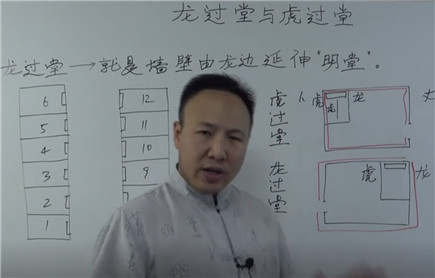 龙过堂与虎过堂
龙过堂→就是墙壁由龙边延伸"明堂"。
6
5
4
3
2
1
12
11
10
9
虎过堂
虎
龙
虎
龙过堂
虎
龙